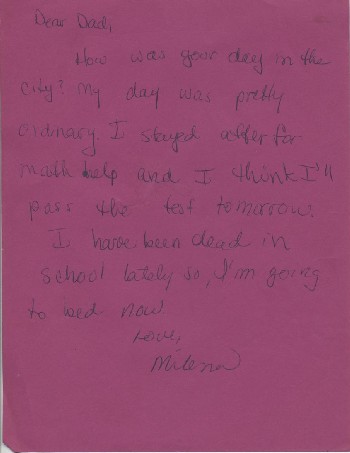 Dear Dad,
How was your day in the
city? My day was pretty
ordinary. I stayed after for
math help and I think I'll
pass the test tomorrow.
I have been dead in
school lately so, I'm going
to bed now
Love,
Milena